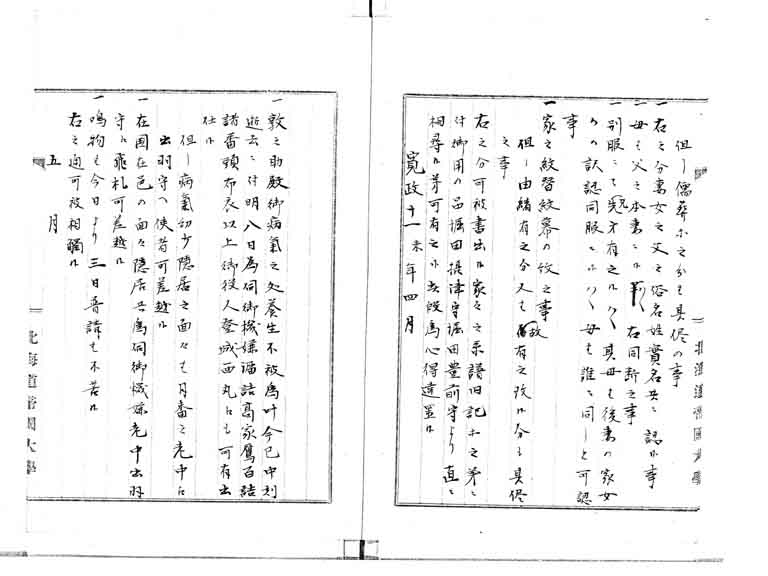 但し儒葬等之分も具侭の事
一右之分妻女之父之俗名姓實名共ニ認候事
一母も父之本妻ニ候ハヽ 右同断之事
一別服ニても 兄方有之候ハヽ 具母も後妻ハ家女
ハヽ 訳認同服ニ候ハヽ 母も誰ニ同しと可認
事
一家之紋替紋幕の紋之事
但し由緒有之分又も 故有之改候分も具侭
之事
右之分可被書出候家々之系譜旧記等之茅ニ
付御用の品堀田摂津守堀田豊前守より直ニ
相尋候茅可有之候間此段為心得達置候
寛政十一未年四月
一敦之助殿御病氣之処養生不被為叶今巳中刻
逝去ニ付明八日為伺御機嫌溜詰高家鴈百詰
諸番頭布衣以上御役人登城西丸江も可有出
仕候
但し病氣幼少隠居之面々も月番之老中江
出羽守へ使者可差越候
一在国在邑の面々隠居共為伺御機嫌老中出羽
守江飛札可差越候
一鳴物も今日より三日普請も不苦候
右之通可被相觸候
五月
北海道帝國大學
北海道帝國大學